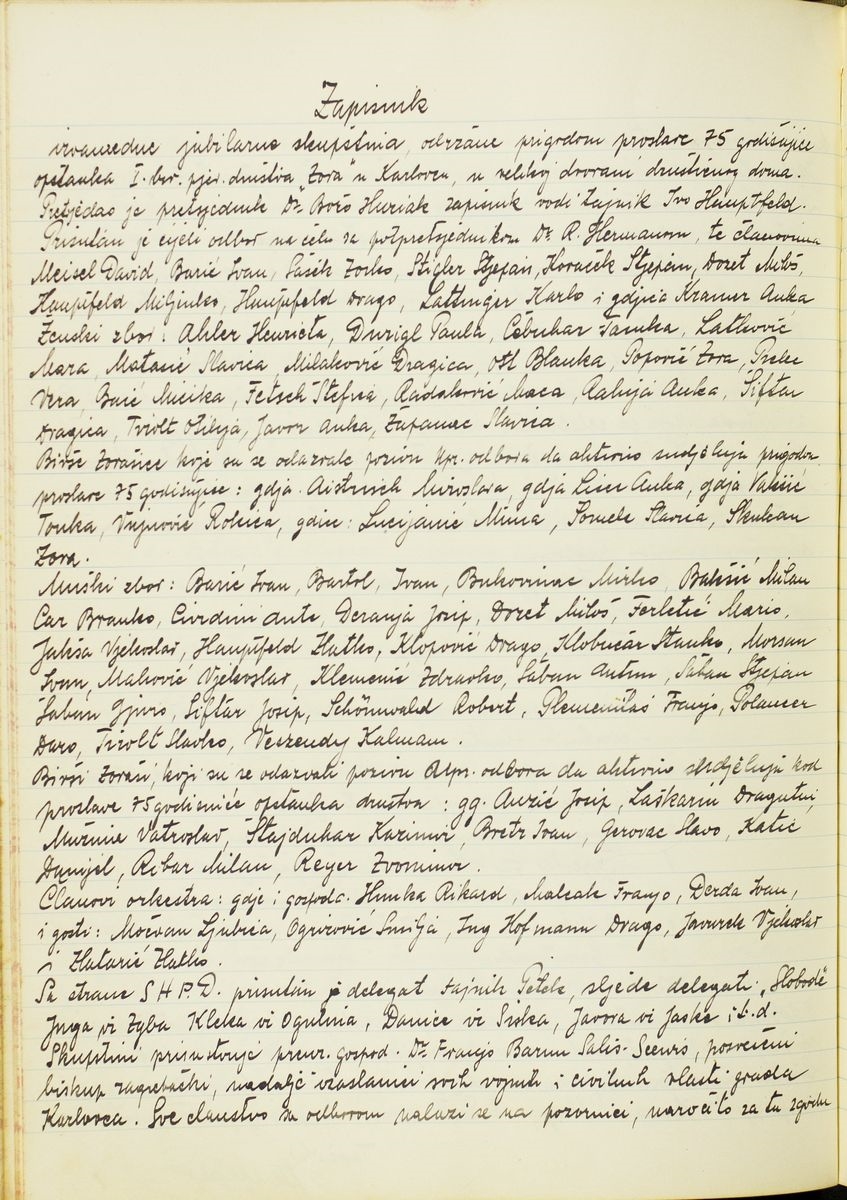 Zapisnik
izvanredne jubilarne skupštine, održane prigodom proslave 75 godišnjice
opstanka I. hrv. pjev. društva "Zora" u Karlovcu, u velikoj dvorani društvenog doma.
Pretsjedao je pretsjednik Dr. Božo Huniak zapisnik vodi tajnik Ivo Hauptfeld.
Prisutan je cijeli odbor na čelu sa potpretsjednikom Dr. R. Hermanom, te članovima
Meisel David, Barić Ivan, Sašek Zorko, Stigler Stjepan, Horaček Stjepan, Dozet Miloš,
Hauptfeld Miljenko, Hauptfeld Drago, Lattinger Karlo i gdjica Kramer Anka
Ženski zbor: Ahler Henrieta, Durigl Paula, Čebuhar Jamka, Latković
Mara, Matasić Slavica, Milaković Dragica, Ott Blanka, Popović Zora,
Vera, Barić Micika, Fetsch Štefica, Radaković Maca, Rakuja Anka, Šiftar
Dragica, Tirolt Otilija, Javor Anka, Županac Slavica.
Bivše Zorašice koje su se odazvale pozivu upr. odbora da aktivno sudjeluju prigodom
proslave 75 godišnjice: gdja. Miroslava, gdja Anka, gdja
Tonka, Vujnović Roksa, gdice: Lucijanić Mima, Somek Slavica, Skukan
Zora.
Muški zbor: Barić Ivan, Bartol, Ivan, Bukovinac Mirko, Bakšić Milan
Car Branko, Civrdini Ante, Deranja Josip, Dozet Miloš, Ferletić Mario,
Jakša Vjekoslav, Hauptfeld Zlatko, Klopović Drago, Klobučar Stanko, Morsan
Ivan, Maković Vjekoslav, Klemenić Zdravko, Šaban Antun, Šaban Stjepan
Šaban Gjuro, Šiftar Josip, Schönwald Robert, Plemenitaš Franjo, Polancer
Daro, Tirolt Slavko, Veszendy Kalman.
Bivši Zoraši, koji su se odazvali pozivu Upr. odbora da aktivno sudjeluju kod
proslave 75 godišnjice opstanka društva: gg. Auzić Josip, Laškarin Dragutin,
Vatroslav, Štajduhar Kazimir, Bretz Ivan, Gerovac Slavo, Katić
Danijel, Ribar Milan, Reyer Zvonimir.
Članovi orkestra: gdje i gospoda. Humka Rikard, Malcak Franjo, Derda Ivan,
i gosti: Močvan Ljubica, Ogrizović Smilja, Ing Hofmann Drago, Javurek Vjekoslav
i Zlatarić Zlatko.
Sa strane S H P. D. prisutan je delegat tajnik Petek, sljede delegati "Slobode"
Juga iz Zgba Kleka iz Ogulina, Danice iz Siska, Javora iz Jaske i.t.d.
Skupštini prisustvuje preuz. gospod. Dr. Franjo Barun Salis-Seewis, posvećeni
biskup zagrebački, nadalje izaslanici svih vojnih i civilnih vlasti grada
Karlovca. Sve članstvo sa odborom nalazi se na pozornici, naročito za tu zgodu